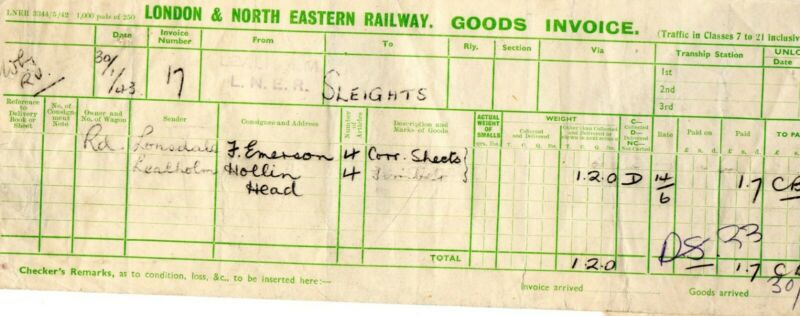 LNER 3344/5/42 1,000 pads of 250 LONDON & NORTH EASTERN RAILWAY. GOODS INVOICE.
(Traffic in Classes 7 to 21 inclusiv
Date Invoice Number From To Rly. Section Via Tranship Station UNLO
30/1/43 17 L.N.E.R. SLEIGHTS
1st
2nd
3rd
Reference to Delivery Book or Sheet No. of Consignment Note Owner and No. of Wagon Sender Consignee and Address Number of Articles Description and Marks of Goods ACTUAL WEIGHT OF SMALLS WEIGHT Collected and Delivered Other than Collected and Delivered C— Collected D— Delivered NC— Not Carted Rate Paid on Paid TO PA
Rd. Lonsdale F. Emerson 4 Corr. Sheets
Lealholm Hollin 4 Timber 1.2.0 D 14/6 1.7
Head
DS. 23
TOTAL 1.2.0 1.7
Checker's Remarks, as to condition, loss, &c., to be inserted here:—
Invoice arrived Goods arrived 30/